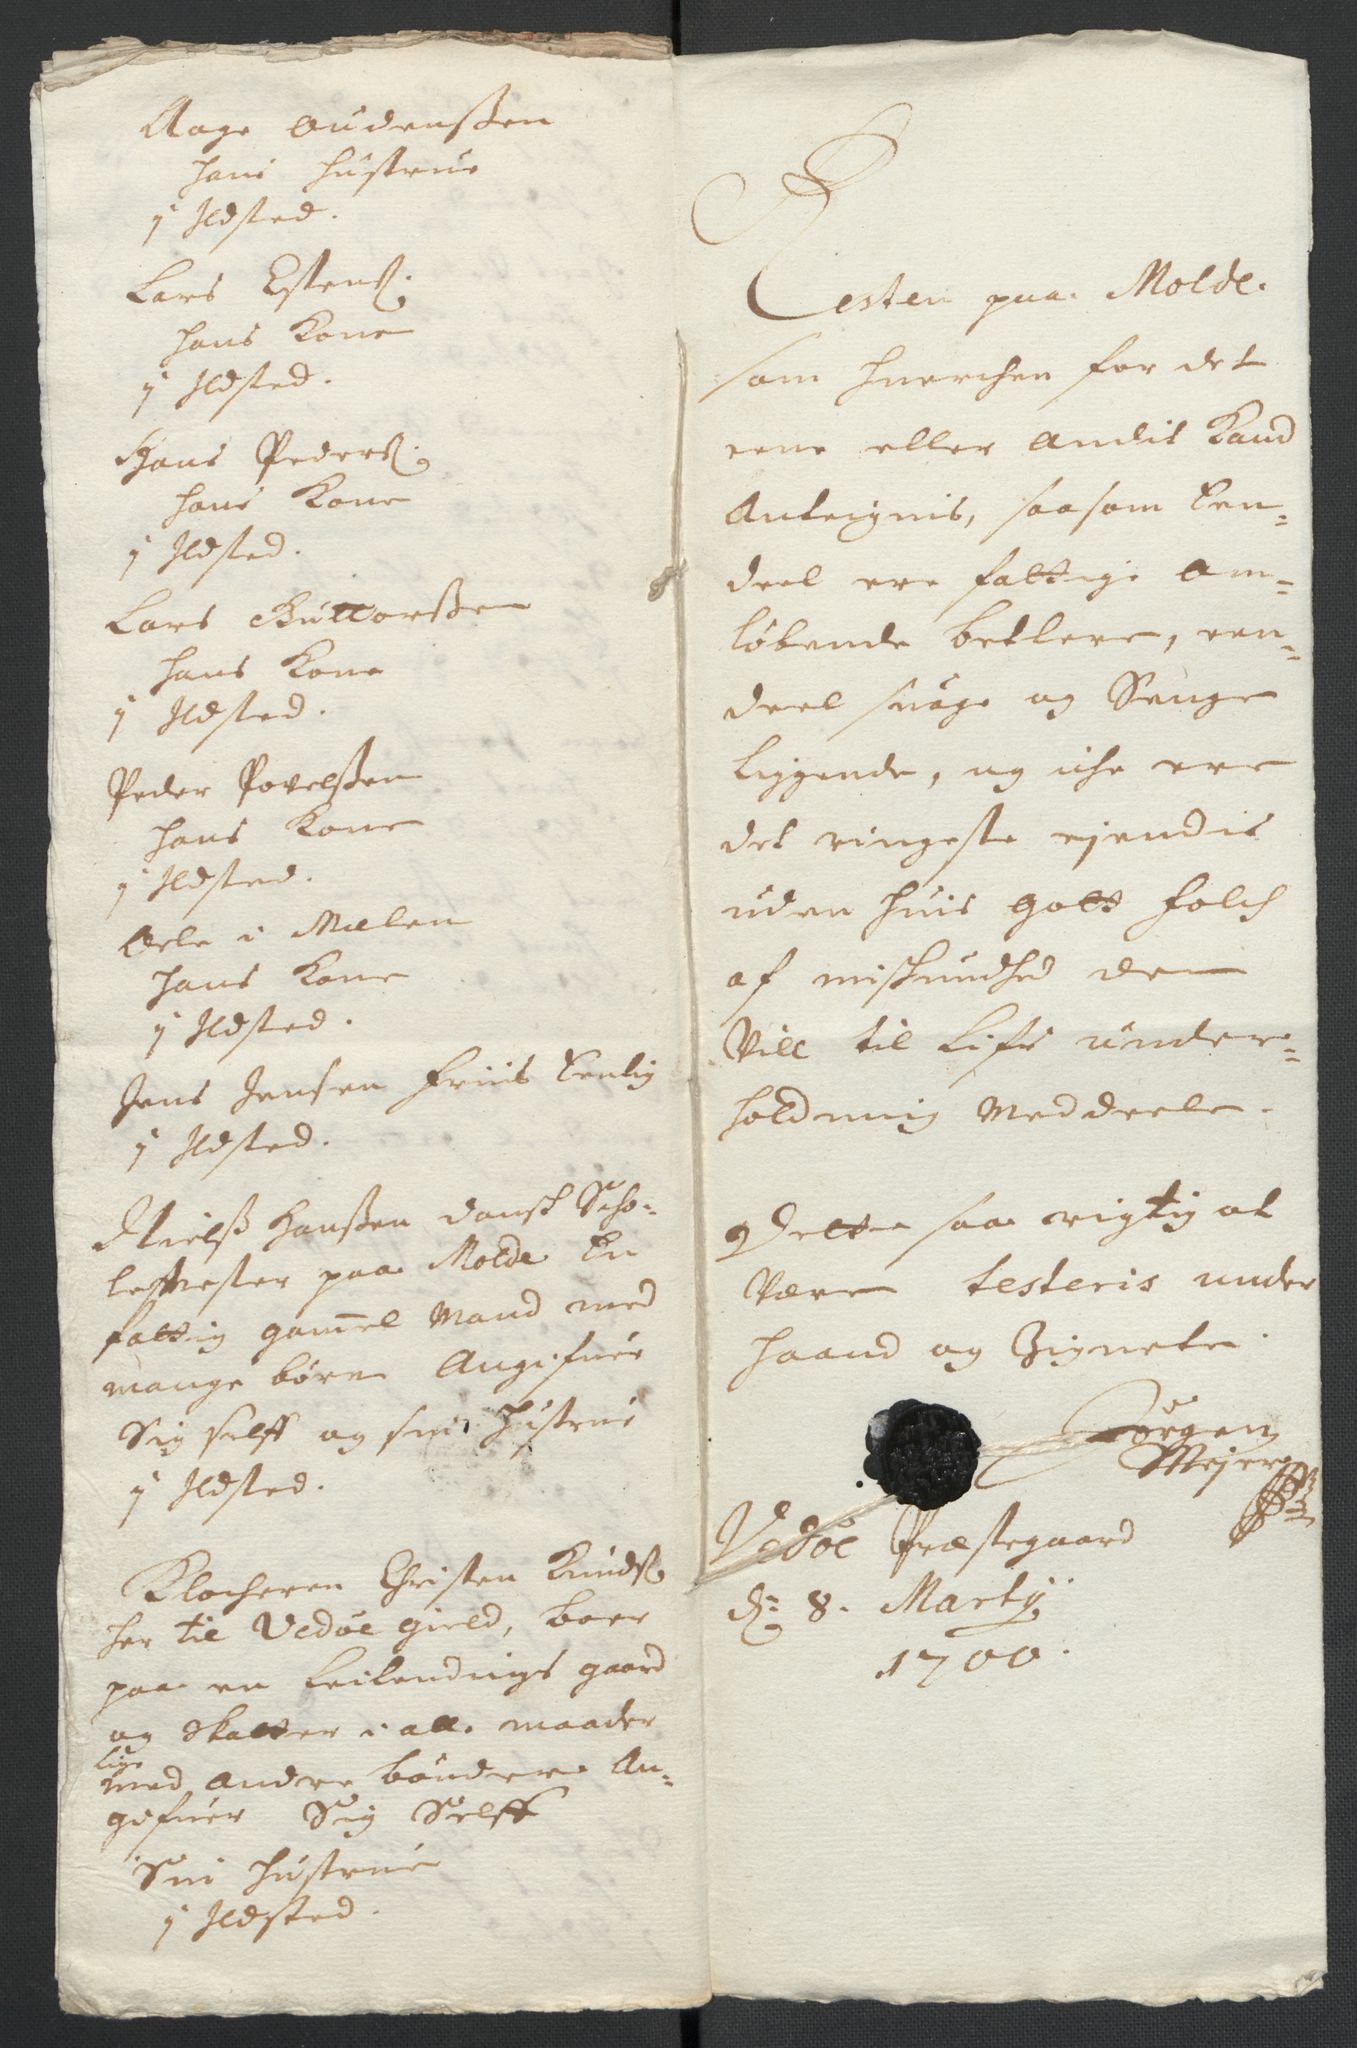 Aage Oudenßen
hans hustrue
1 Ildsted.
Lars Estens.
hans Kone
1 Ildsted.
Hans Peders.
hans Kone
1 Ildsted.
Lars Guttorßen
hans Kone
1 Ildsted.
Peder Povelßen
hans Kone
1 Ildsted.
Oele i Mælen
hans Kone
1 Ildsted.
Jens Jensen Friis Eenlig
1 Ildsted.
Nielß Hanßen dansk Scho-
lemester paa Molde En
fattig gammel Mand med
mange børn Angifuer
Sig selff og sin hustrue
1 Ildsted.
Klocheren Christen Knuds.
her til Vedøe gield, boer
paa en Leilendings gaard
og skatter i alle maader
lige
med andre bønder An-
gifuer Sig Selff
Sin hustrue
1 Ildsted.
Resten paa Molde.
som huerchen for det
eene eller andit kand
Anteignis, saasom Een-
deel ere fattige om-
løbende betlere, een-
deel suage og Senge
liggende, og iche ere
det ringeste ejendis
uden huis gott folch
af miskundhed dem
vill til Lifs under-
holdning meddeele.
Dette saa rigtig at
være testeris under
haand og Zignete.
Jørgen
Mejer
Vedøe Præstegaard
d: 8. Martij
1700.